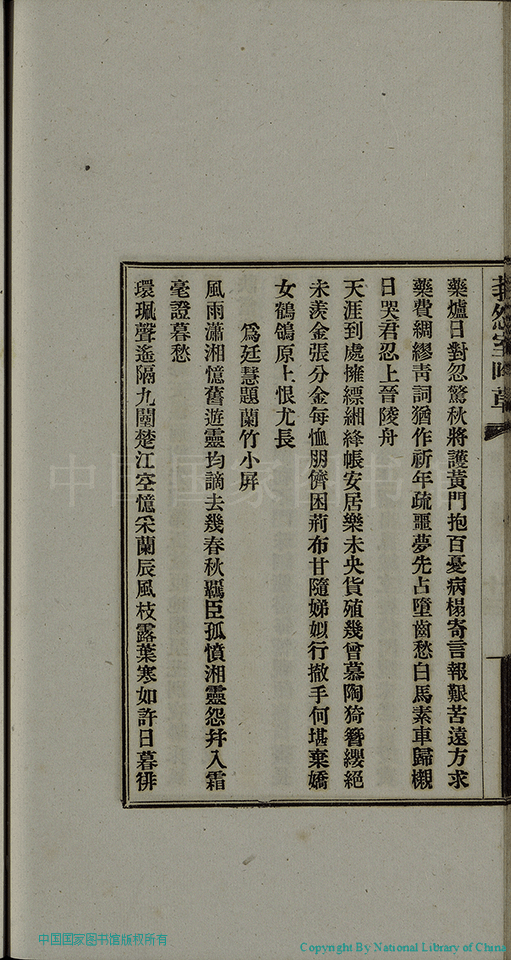 藥爐日對忽驚秋將護黃門抱百憂病榻寄言報艱苦遠方求
藥費綢繆靑詞猶作祈年疏噩夢先占墮齒愁白馬素車歸櫬
日哭君忍上晉陵舟
天涯到處擁縹緗絳帳安居樂未央貨殖幾曾慕陶猗簪纓絕
未羨金張分金每恤朋儕困荊布甘隨娣姒行撤手何堪棄嬌
女鶺鴒原上恨尤長
爲廷慧題蘭竹小屏
風雨瀟湘憶舊遊靈均謫去幾春秋羈臣孤憤湘靈怨幷入霜
毫證暮愁
環珮聲遙隔九閶楚江空憶采蘭辰風枝露葉寒如許日暮徘
中国国家图书馆
中国国家图书馆版权所有
Copyright By National Library of China